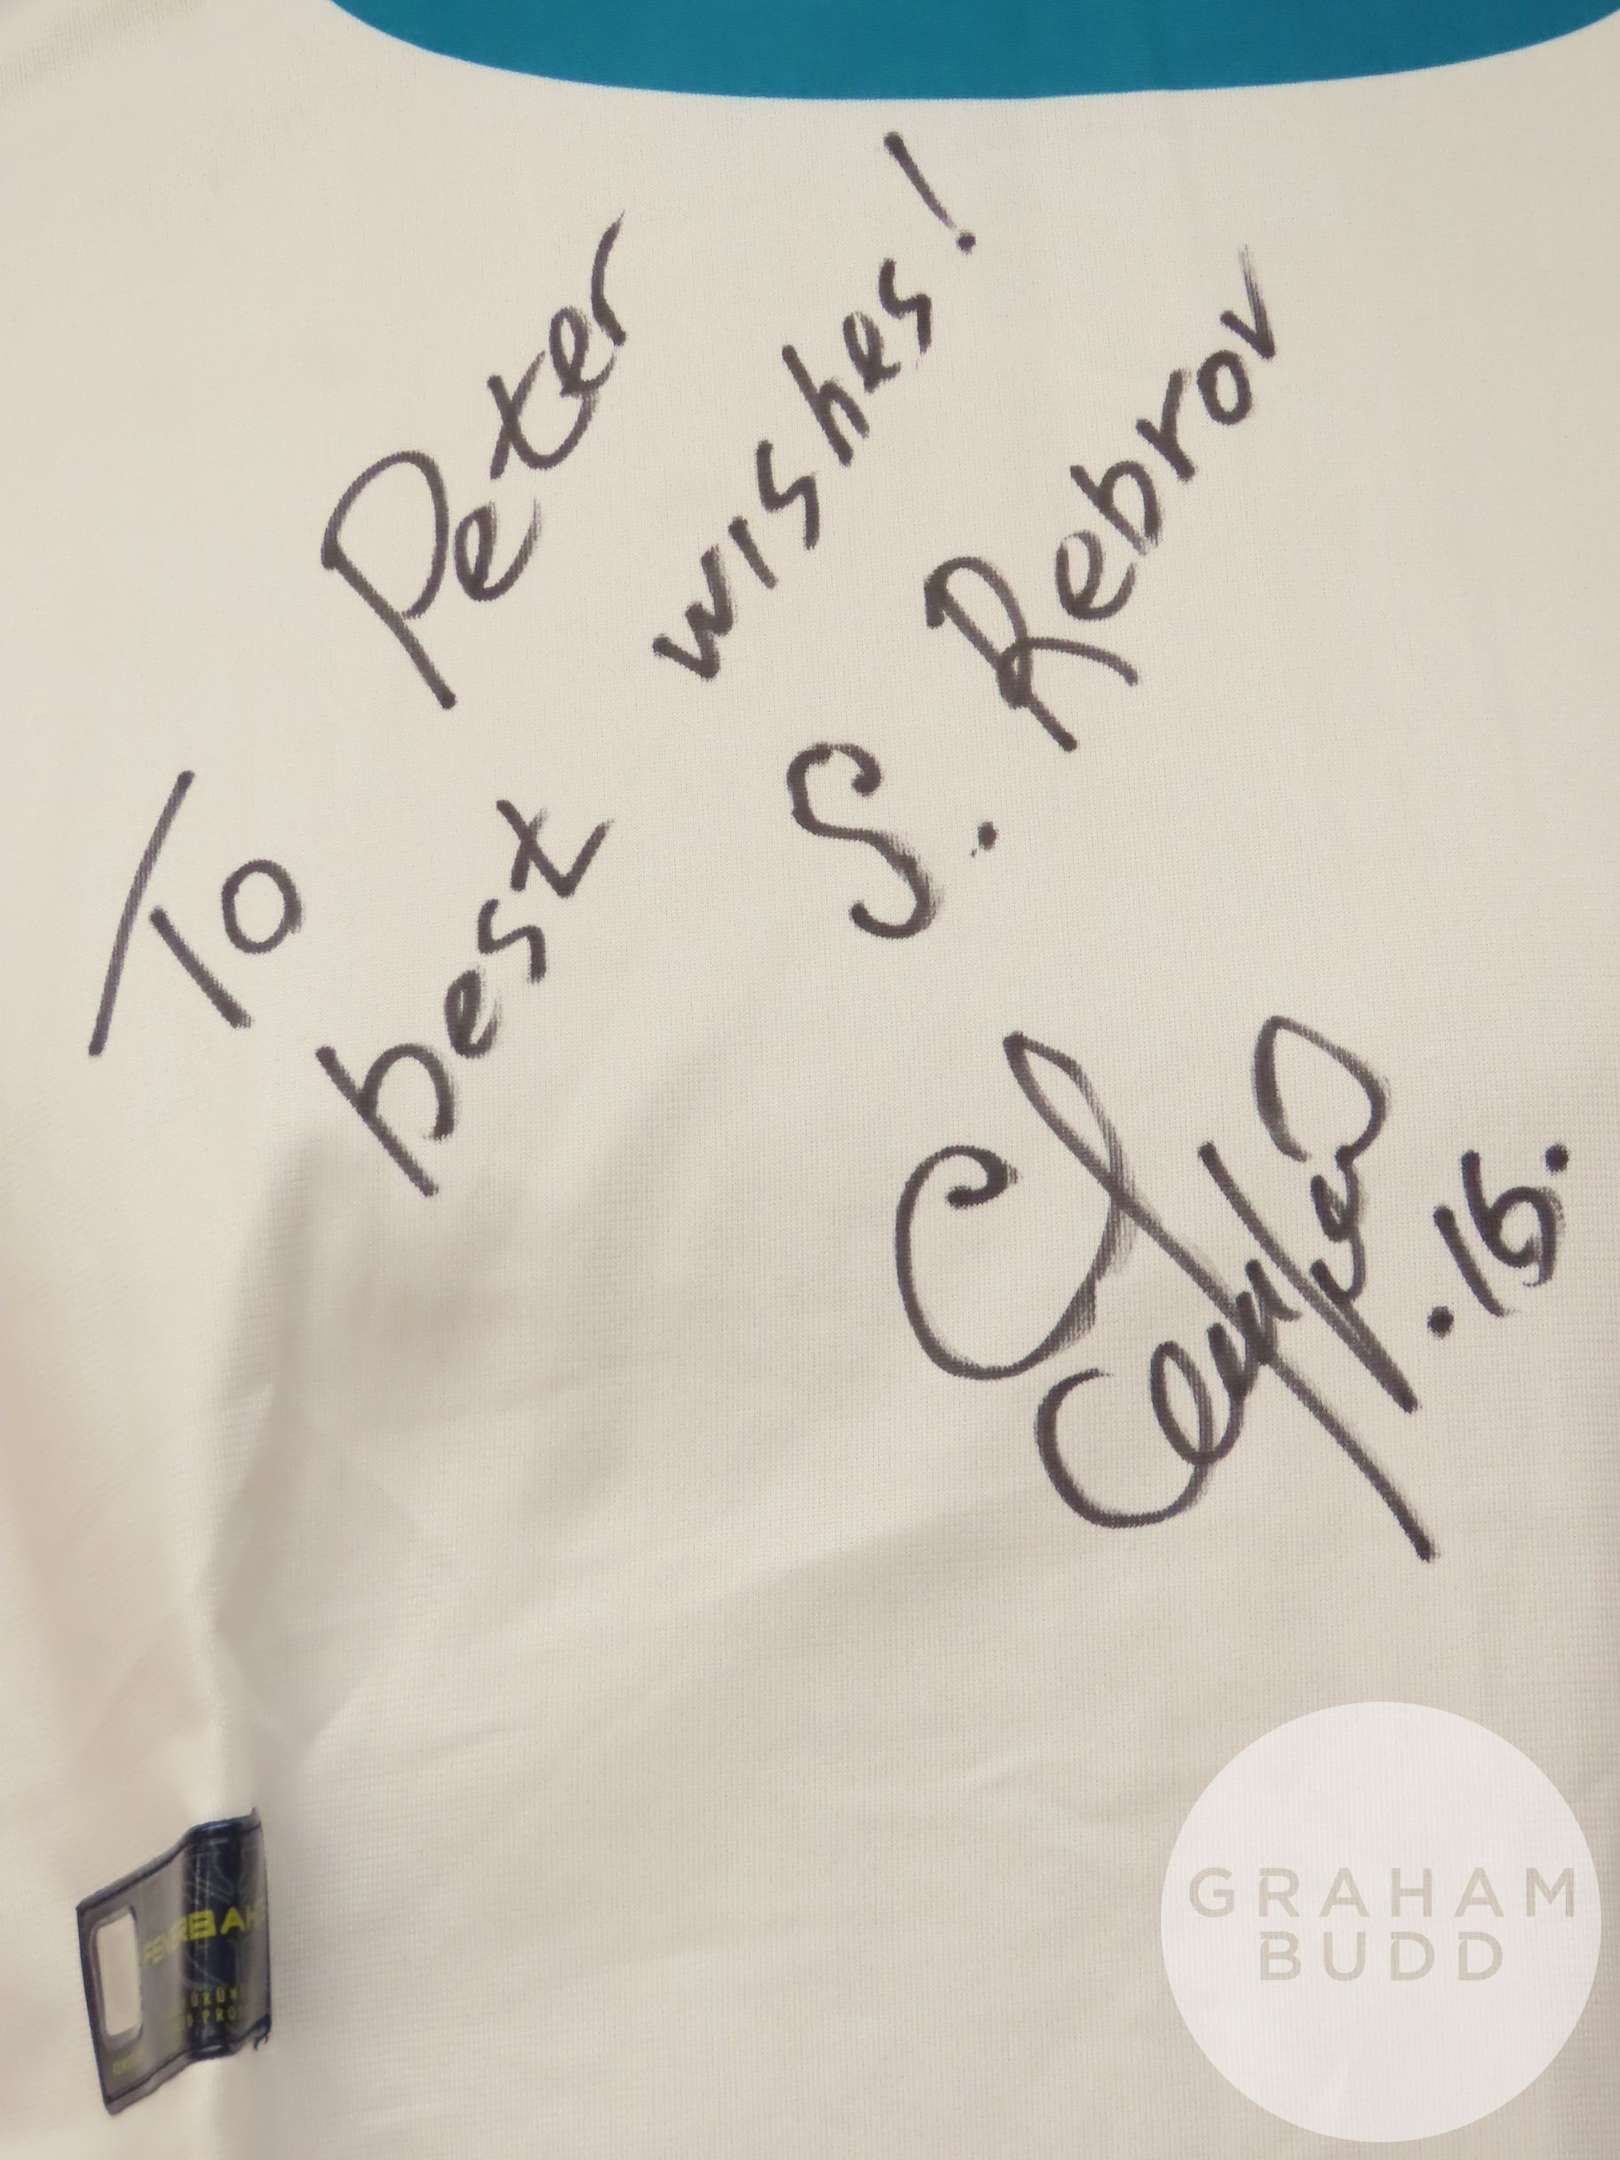 To Peter
best wishes!
S. Rebrov
.16.
FENERBAH
GRAHAM
BUDD